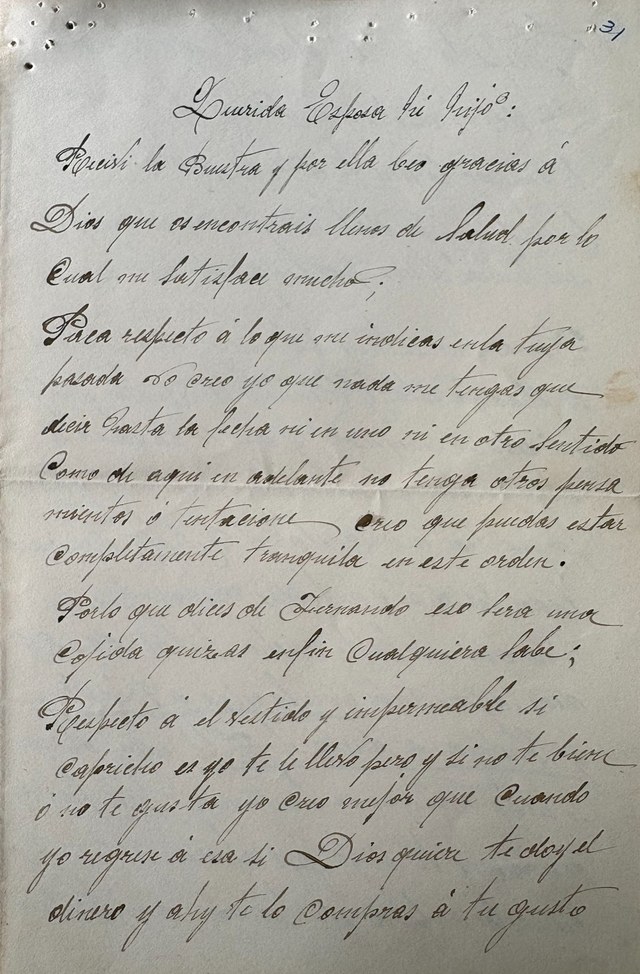 31
Querida Esposa hé hijos:
Recivi la Buestra y por ella beo gracias á
Dios que os encontrais llenos de Salud por lo
Cual me Satisface mucho;
Paca respecto á lo que me indicas en la tuya
pasada No Creo yo que nada me tengas que
decir hasta la fecha ni en uno ni en otro Sentido
Como de aqui en adelante no tenga otros pensa
mientos ó tentacione Creo que puedas estar
Completamente tranquila en este orden.
Porlo que dices de Fernando eso Sera una
Cojida quizas enfin Cualquiera Sabe;
Respecto á el Vestido y impermeable si
Capricho es yo te le llevo pero y si no te biene
ó no te gusta yo Creo mejor que Cuando
yo regrese á esa si Dios quiere te doy el
dinero y ahy te lo Compras á tu gusto